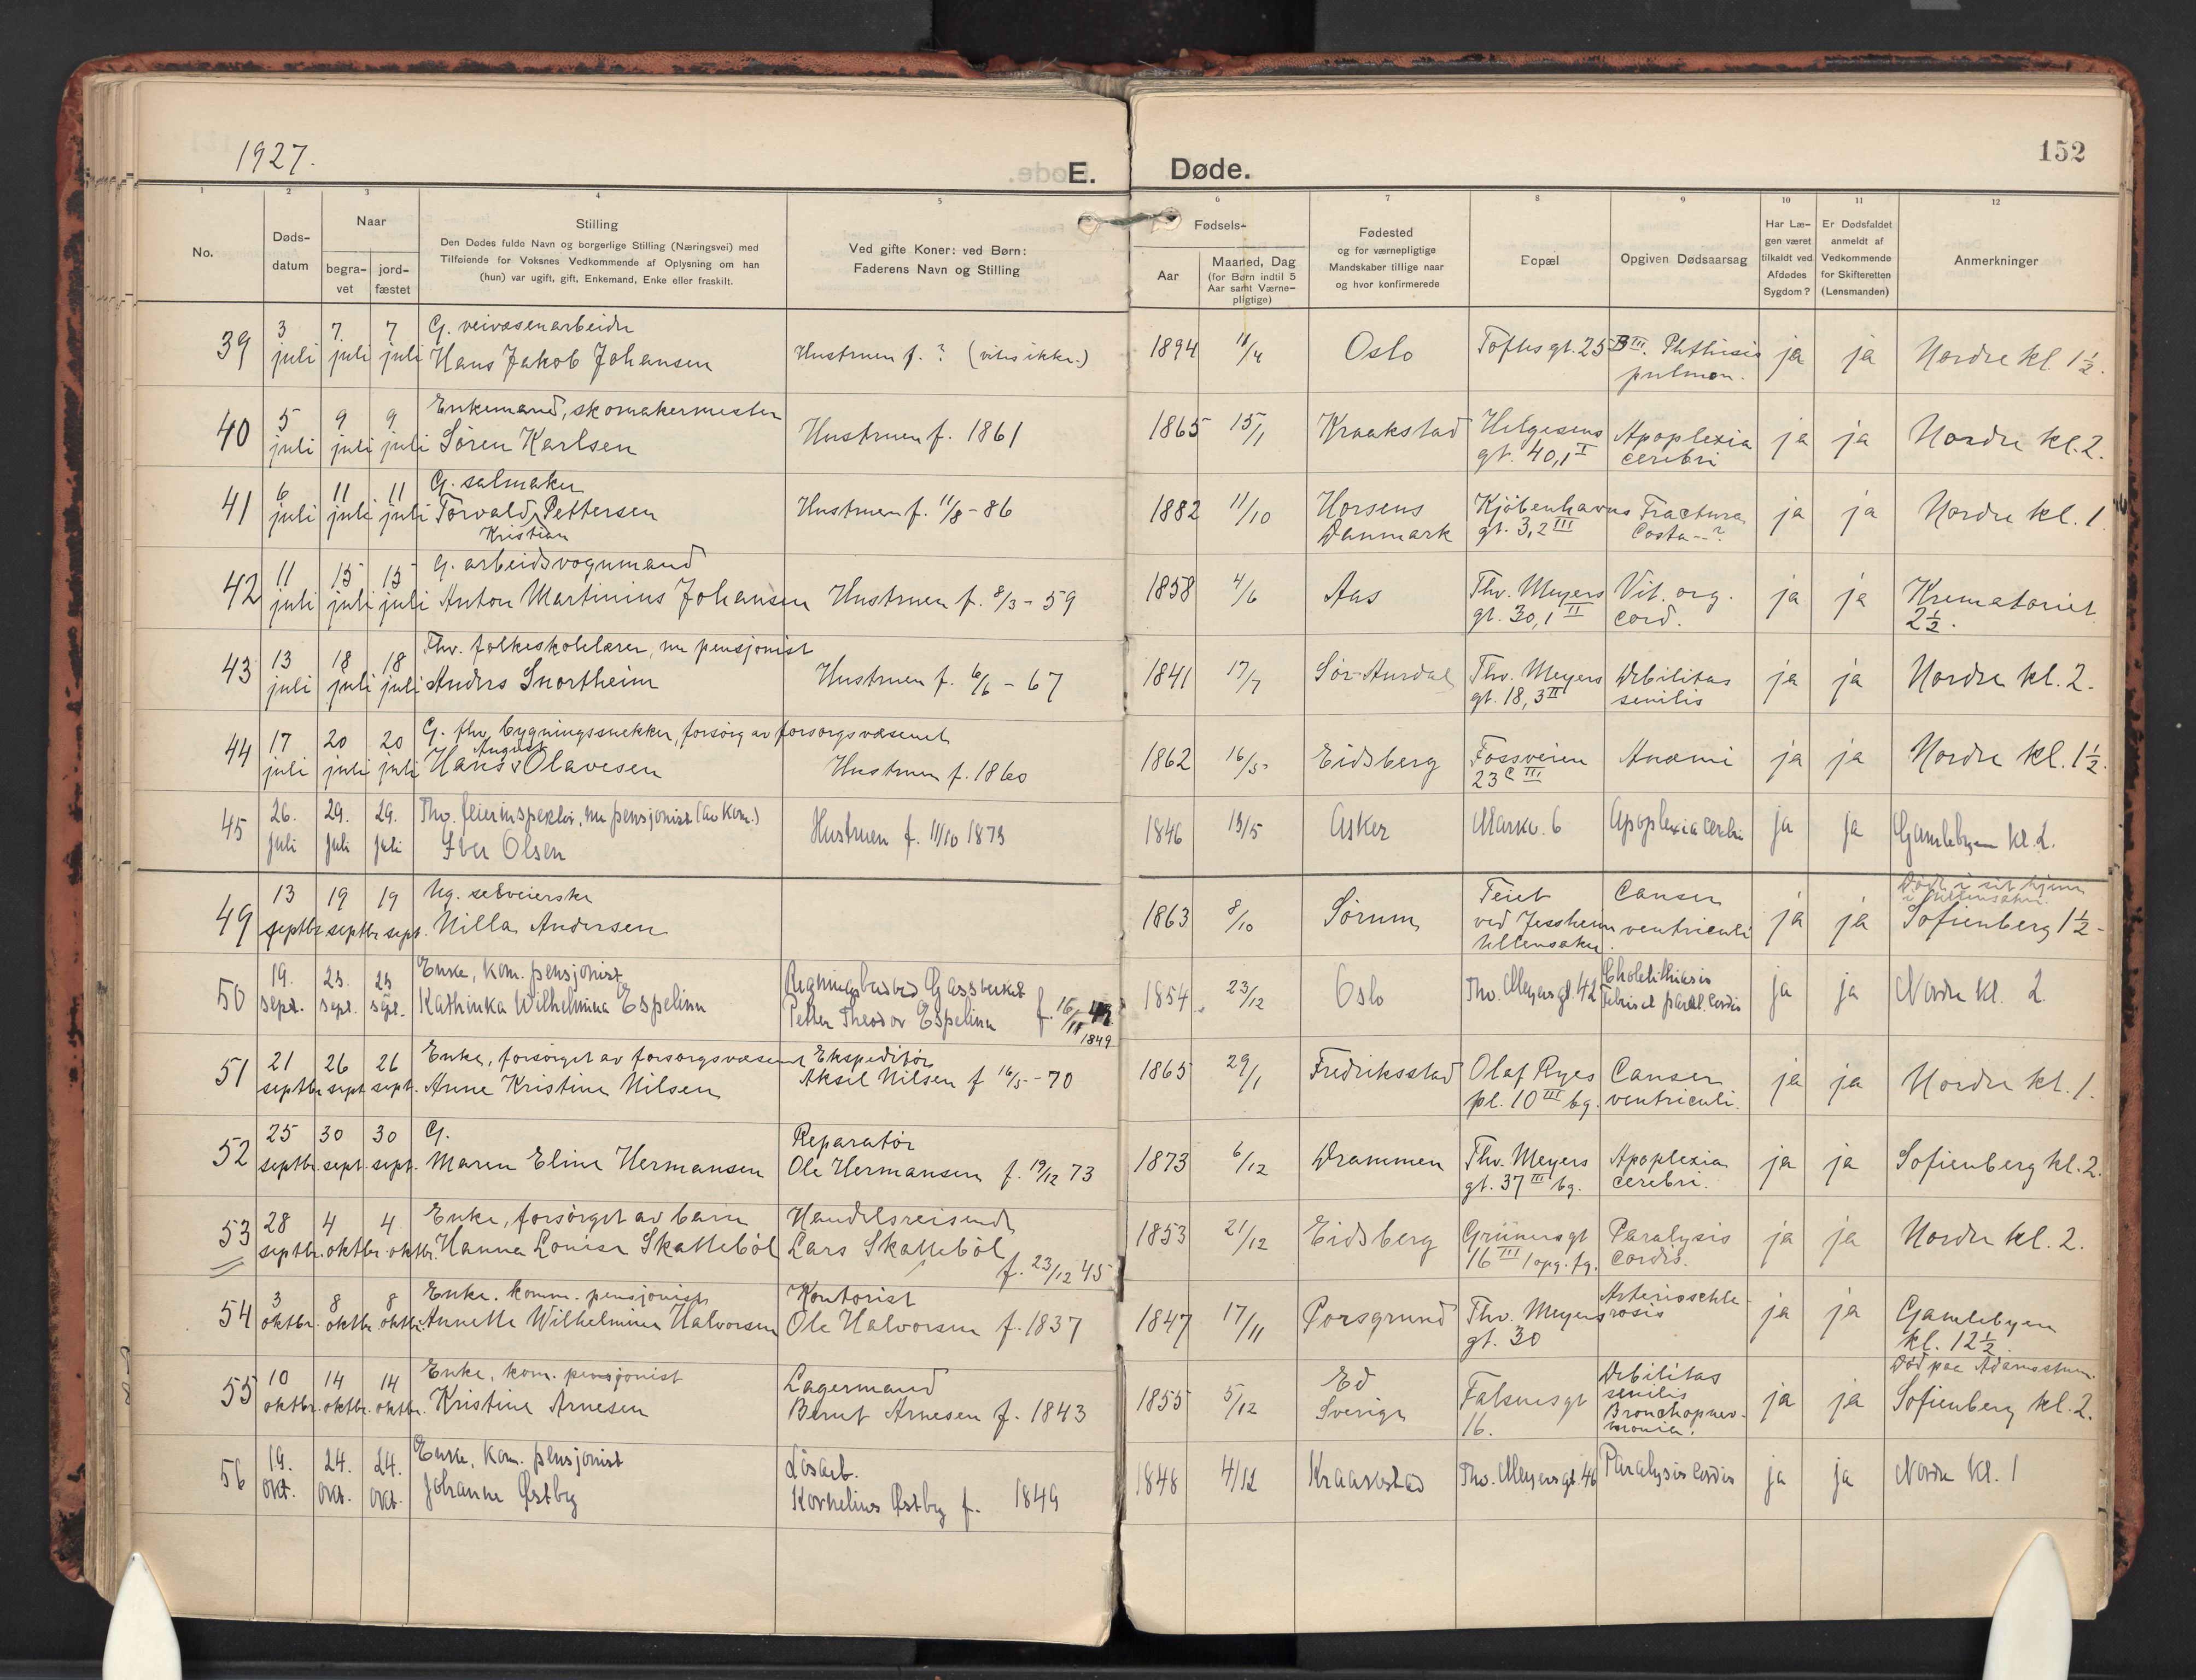 1927.
E. Døde.
152
1 2 3 4 5 6 7 8 9 10 11 12
No.
Døds-
datum
Naar
begra-
vet
jord-
fæstet
Stilling
Den Dødes fulde Navn og borgerlige Stilling (Næringsvei) med
Tilføiende for Voksnes Vedkommende af Oplysning om han
(hun) var ugift, gift, Enkemand, Enke eller fraskilt.
Ved gifte Koner: ved Børn:
Faderens Navn og Stilling
Fødsels-
Aar
Maaned, Dag
(for Børn indtil 5
Aar samt Værne-
pligtige)
Fødested
og for værnepligtige
Mandskaber tillige naar
og hvor konfirmerede
Bopæl
Opgiven Dødsaarsag
Har Læ-
gen været
tilkaldt ved
Afdødes
Sygdom?
Er Dødsfaldet
anmeldt af
Vedkommende
for Skifteretten
(Lensmanden)
Anmerkninger
39 3 juli 7 juli 7 juli
G. veivæsenarbeider
Hans Jakob Johansen
Hustruen f. ? (vites ikke.)
1894 11/4 Oslo Toftesgt. 25 B III. Phthisis
pulmon.
ja ja Nordre kl. 1½.
40 5 juli 9 juli 9 juli
Enkemand, skomakermester
Sören Karlsen
Hustruen f. 1861
1865 15/1 Kraakstad Helgesens
gt. 40,1 I
Apoplexia
cerebri
ja ja Nordre kl. 2.
41 6 juli 11 juli 11 juli
G. salmaker
Torvald Pettersen
Kristian
Hustruen f. 11/8 - 86
1882 11/10 Horsens
Danmark
Kjöbenhavns
gt. 3,2 III
Fractura
Costa--?
ja ja Nordre kl. 1
42 11 juli 15 juli 15 juli
G. arbeidsvognmand
Anton Martinius Johansen
Hustruen f. 8/3 - 59
1858 4/6 Aas Thv. Meyers
gt. 30,1 II
Vit. org.
cord.
ja ja Krematoriet
2½.
43 13 juli 18 juli 18 juli
Fhv. folkeskolelærer, nu pensjonist
Anders Snortheim
Hustruen f. 6/6 - 67
1841 17/7 Sör-Aurdal Thv. Meyers
gt. 18, 3 II
Debilitas
senilis
ja ja Nordre kl. 2.
44 17 juli 20 juli 20 juli
G. fhv. bygningssnekker, forsörg av forsorgsvæsenet
August
Hans Olavesen
Hustruen f. 1860
1862 16/5 Eidsberg Fossveien
23 C III
Anæmi
ja ja Nordre kl. 1½.
45 26. juli 29. juli 29. juli
Fhv. feierinspektör, nu pensjonist (av Kom.)
Iver Olsen
Hustruen f. 11/10 1873
1846 13/5 Asker Markv. 6 Apoplexia cerebri ja ja Gamlebyen kl. 2.
49 13 septbr. 19 septbr. 19 sept.
Ug. selveierske
Nilla Andersen
1863 8/10 Sörum Teiet
ved Jessheim
Ullensaker.
Cancer
ventriculi
ja ja
Döde i sit hjem
i Ullensaker.
Sofienberg 1½-
50 19. sept. 23. sept. 23 sept.
Enke, kom. pensjonist
Kathinka Wilhelmina Espelinn
Regningsbud ved Gassverket
Petter Theodor Espelinn f. 16/11 1849
1854. 23/12 Oslo Thv. Meyers gt. 42 Cholelithiasis
Febris et paral. Cordis
ja ja Nordre kl. 2.
51 21 septbr. 26 sept. 26 sept.
Enke, forsörget av forsorgsvæsenet
Anne Kristine Nilsen
Ekspeditör
Aksel Nilsen f 16/5 - 70
1865 29/1 Fredriksstad Olaf Ryes
pl. 10 III bg.
Cancer
ventriculi.
ja ja Nordre kl. 1.
52 25 septbr. 30 sept. 30 sept.
G.
Maren Eline Hermansen
Reparatör
Ole Hermansen f. 19/12 73
1873 6/12 Drammen Thv. Meyers
gt. 37 III bg.
Apoplexia
cerebri.
ja ja Sofienberg kl. 2.
53 28 septbr. 4 oktbr. 4 oktbr.
Enke, forsörget av barn
Hanna Lovise Skatteböl
Handelsreisende
Lars Skatteböl
f. 23/12 45
1853 21/12 Eidsberg Grünersgt
16 III 1 opg. fg.
Paralysis
cordis.
ja ja Nordre kl. 2.
54 3 oktbr. 8 oktbr. 8 oktbr.
Enke. komm. pensjonist
Annette Wilhelmine Halvorsen
Kontorist
Ole Halvorsen f. 1837
1847 17/11 Porsgrund Thv. Meyers
gt. 30
Arterioschle-
rosis
ja ja Gamlebyen
kl. 12½.
55 10 oktbr. 14 oktbr. 14 oktbr.
Enke, kom. pensjonist
Kristine Arnesen
Lagermand
Bernt Arnesen f. 1843
1855 5/12 Ed
Sverige
Falsensgt
16.
Debilitas
senilis
Bronchopnev-
monia.
ja ja
Död paa Adamstuen.
Sofienberg kl. 2.
56 19. okt. 24. okt. 24. okt.
Enke, kom. pensjonist
Johanne Østby
Løsarb.
Kornelius Østby f. 1849
1848 4/12 Kraakstad Thv. Meyers gt. 46 Paralysis Cordis ja ja Nordre kl. 1